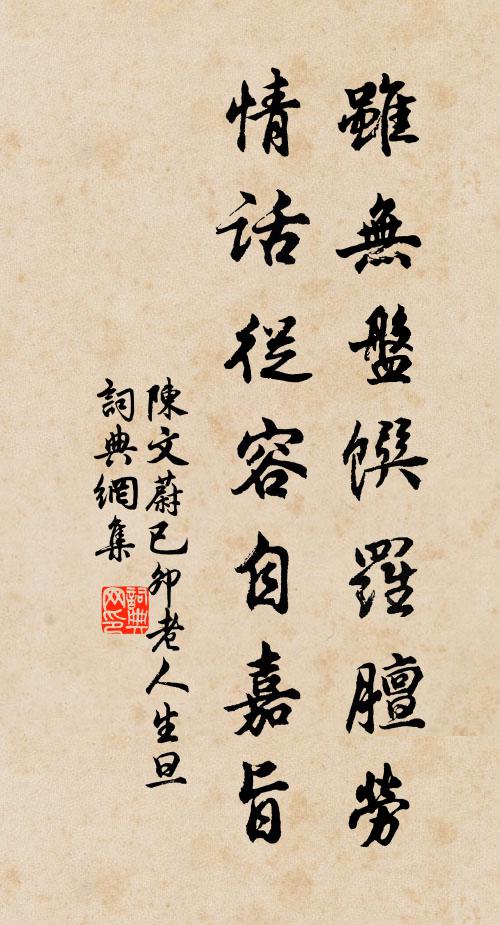 雖無盤饌羅膻勞
情話從容自嘉旨
陳文蔚己卯老人生旦
詞典網集
詞典网印